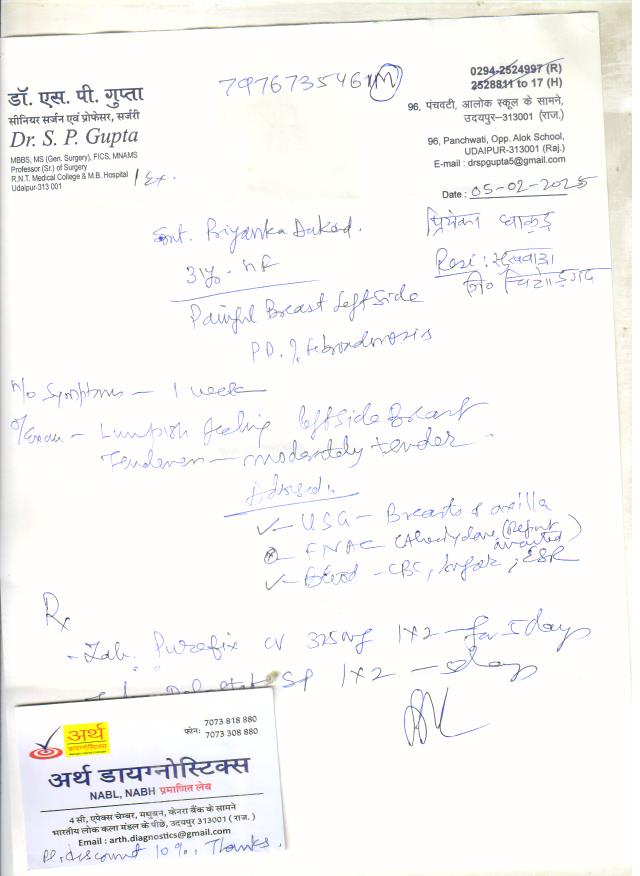 7976735461 M
डॉ. एस. पी. गुप्ता
सीनियर सर्जन एवं प्रोफेसर, सर्जरी
Dr. S. P Gupta
MBBS, MS (Gen. Surgery), FICS, MNAMS
Professor (Sr.) of Surgery
R.N.T. Medical College & M.B. Hospital / Ex.
Udaipur-313 001
0294-2524997 (R)
2528811 to 17 (H)
96, पंचवटी, आलोक स्कूल के सामने,
उदयपुर–313001 (राज.)
96, Panchwati, Opp. Alok School,
UDAIPUR-313001 (Raj.)
E-mail : drspgupta5@gmail.com
Date : 05-02-2025
Smt. Priyanka Dakad.
प्रियंका धाकड़
Resi :
31y -
Painful Breast left side
P.D. ? Febroadenosis
H/o Symptoms – 1 week
O/Exam – Lumpish feeling left side Breast
Tenderness – moderately tender
Advised:
✓ – USG – Breasts & axilla
FNAC (Already done (Report awaited)
✓ – Blood – CBC, sugar, ESR
Rx
- Tab. Purefix CV 325mg 1x2 – for 5 days
SP 1x2 – days
अर्थ
डायग्नोस्टिक्स
फोन: 7073 818 880
7073 308 880
अर्थ डायग्नोस्टिक्स
NABL, NABH प्रमाणित लेब
4 सी, एपेक्स चेम्बर, मधुबन, केनरा बैंक के सामने
भारतीय लोक कला मंडल के पीछे, उदयपुर 313001 ( राज. )
Email : arth.diagnostics@gmail.com
Pl. discount 10%, Thanks.